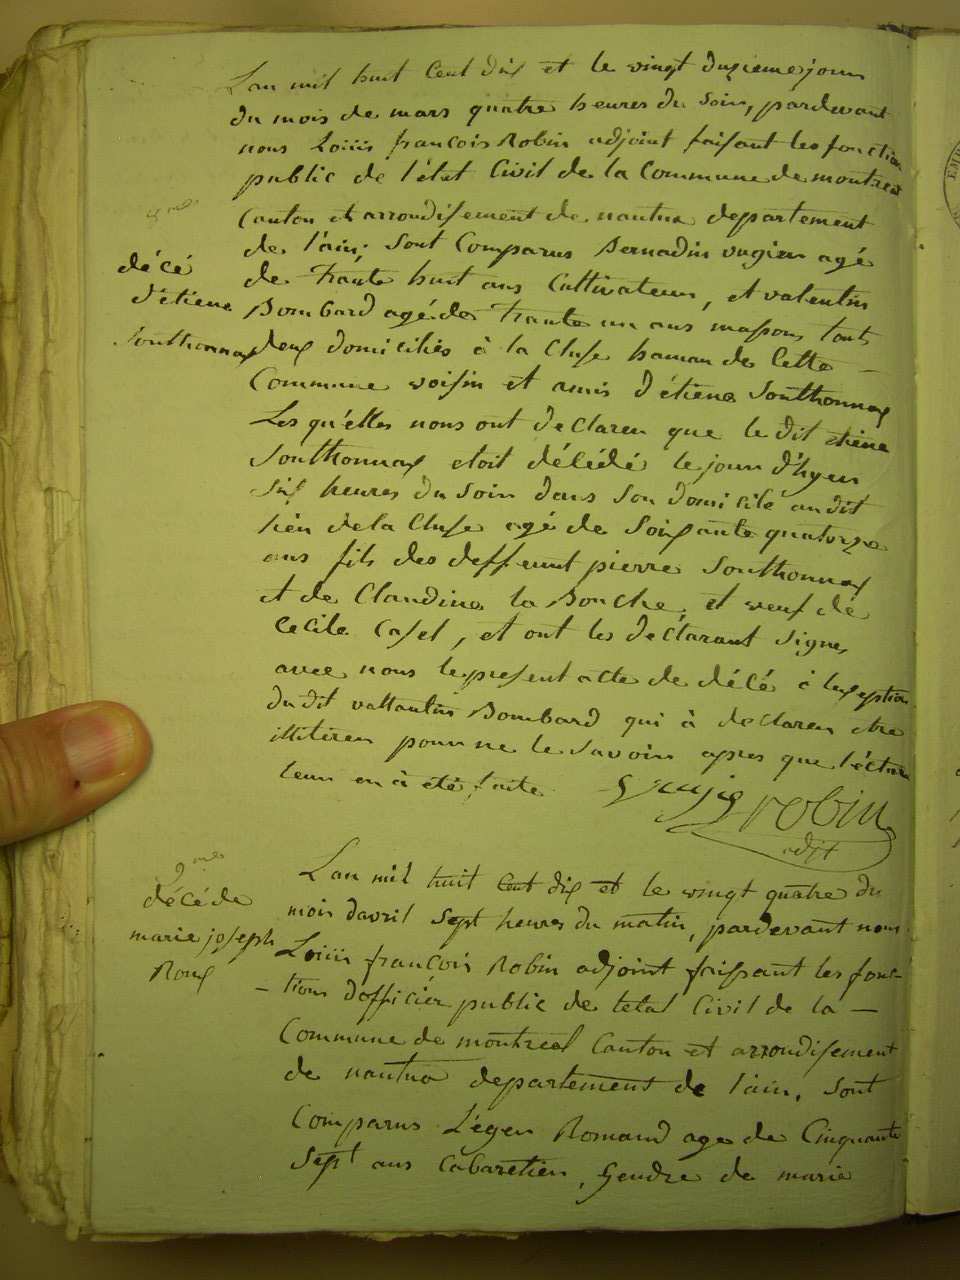 Lan mil huit Cent dix et le vingt duzieme jour
du mois de mars quatre heures du soir, pardevant
nous Loüis francois Robin adjoint faisant les fonction
public de l'état Civil de la Commune de montreal
Canton et arrondisement de nantua departement
de l'ain; sont Comparus Bernadin
agé
de trante huit ans Cultivateur, et valentin
Bombard agé de trante un ans masson, touts
deux domiciliés à la Cluse hamau de Cette
Commune voisin et amis d'étiene Southonnax
Les qu'elles nous ont declarer que le dit etiene
Southonnax etoit décédé le jour d'hyer
six heures du soir dans son domicile au dit
lieu de la Cluse agé de soixante quatorze
ans fils des deffeunt pierre Southonnax
et de Claudine la Bouche, et veuf de
Cecile Caset, et ont les declarant signes
avec nous le present acte de décé à lexseption
du dit vallantin Bombard qui à declarer etre
illiterer pour ne le savoir apres que léctu
leur en à été faite
robin
adjt
décé
d'étiene
Southonnax
9mes
décé de
marie joseph
Roux
Lan mil huit Cent dix et le vingt quatre du
mois davril sept heures du matin, pardevant nous
Loüis francois Robin adjoint faissant les fonc-
tions dofficier public de letat Civil de la
Commune de montreal Canton et arrondisement
de nantua departement de l'ain, sont
Comparus Léger Romand age de Cinquante
sept ans Cabaretier, gendre de marie